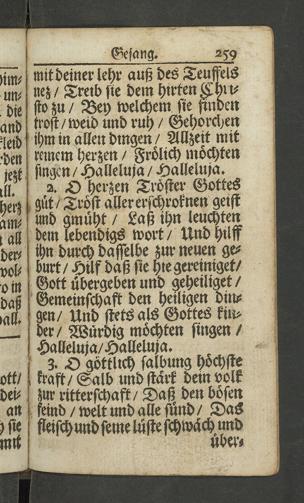 Gesang. 259
mit deiner lehr auß des Teuffels
nez / Treib sie dem hirten Chri-
sto zu / Bey welchem sie finden
trost / weid und ruh / Gehorchen
ihm in allen dingen / Allzeit mit
reinem herzen / Frölich möchten
singen / Halleluja / Halleluja.
2. O herzen Tröster Gottes
güt / Tröst aller erschroknen geist
und gmüht / Laß ihn leuchten
dem lebendigs wort / Und hilff
ihn durch dasselbe zur neuen ge-
burt / Hilf daß sie hie gereiniget /
Gott übergeben und geheiliget /
Gemeinschaft den heiligen din-
gen / Und stets als Gottes kin-
der / Würdig möchten singen /
Halleluja / Halleluja.
3. O göttlich salbung höchste
kraft / Salb und stärk dein volk
zur ritterschaft / Daß den bösen
feind / welt und alle sünd / Das
fleisch und seine lüste schwäch und
über-